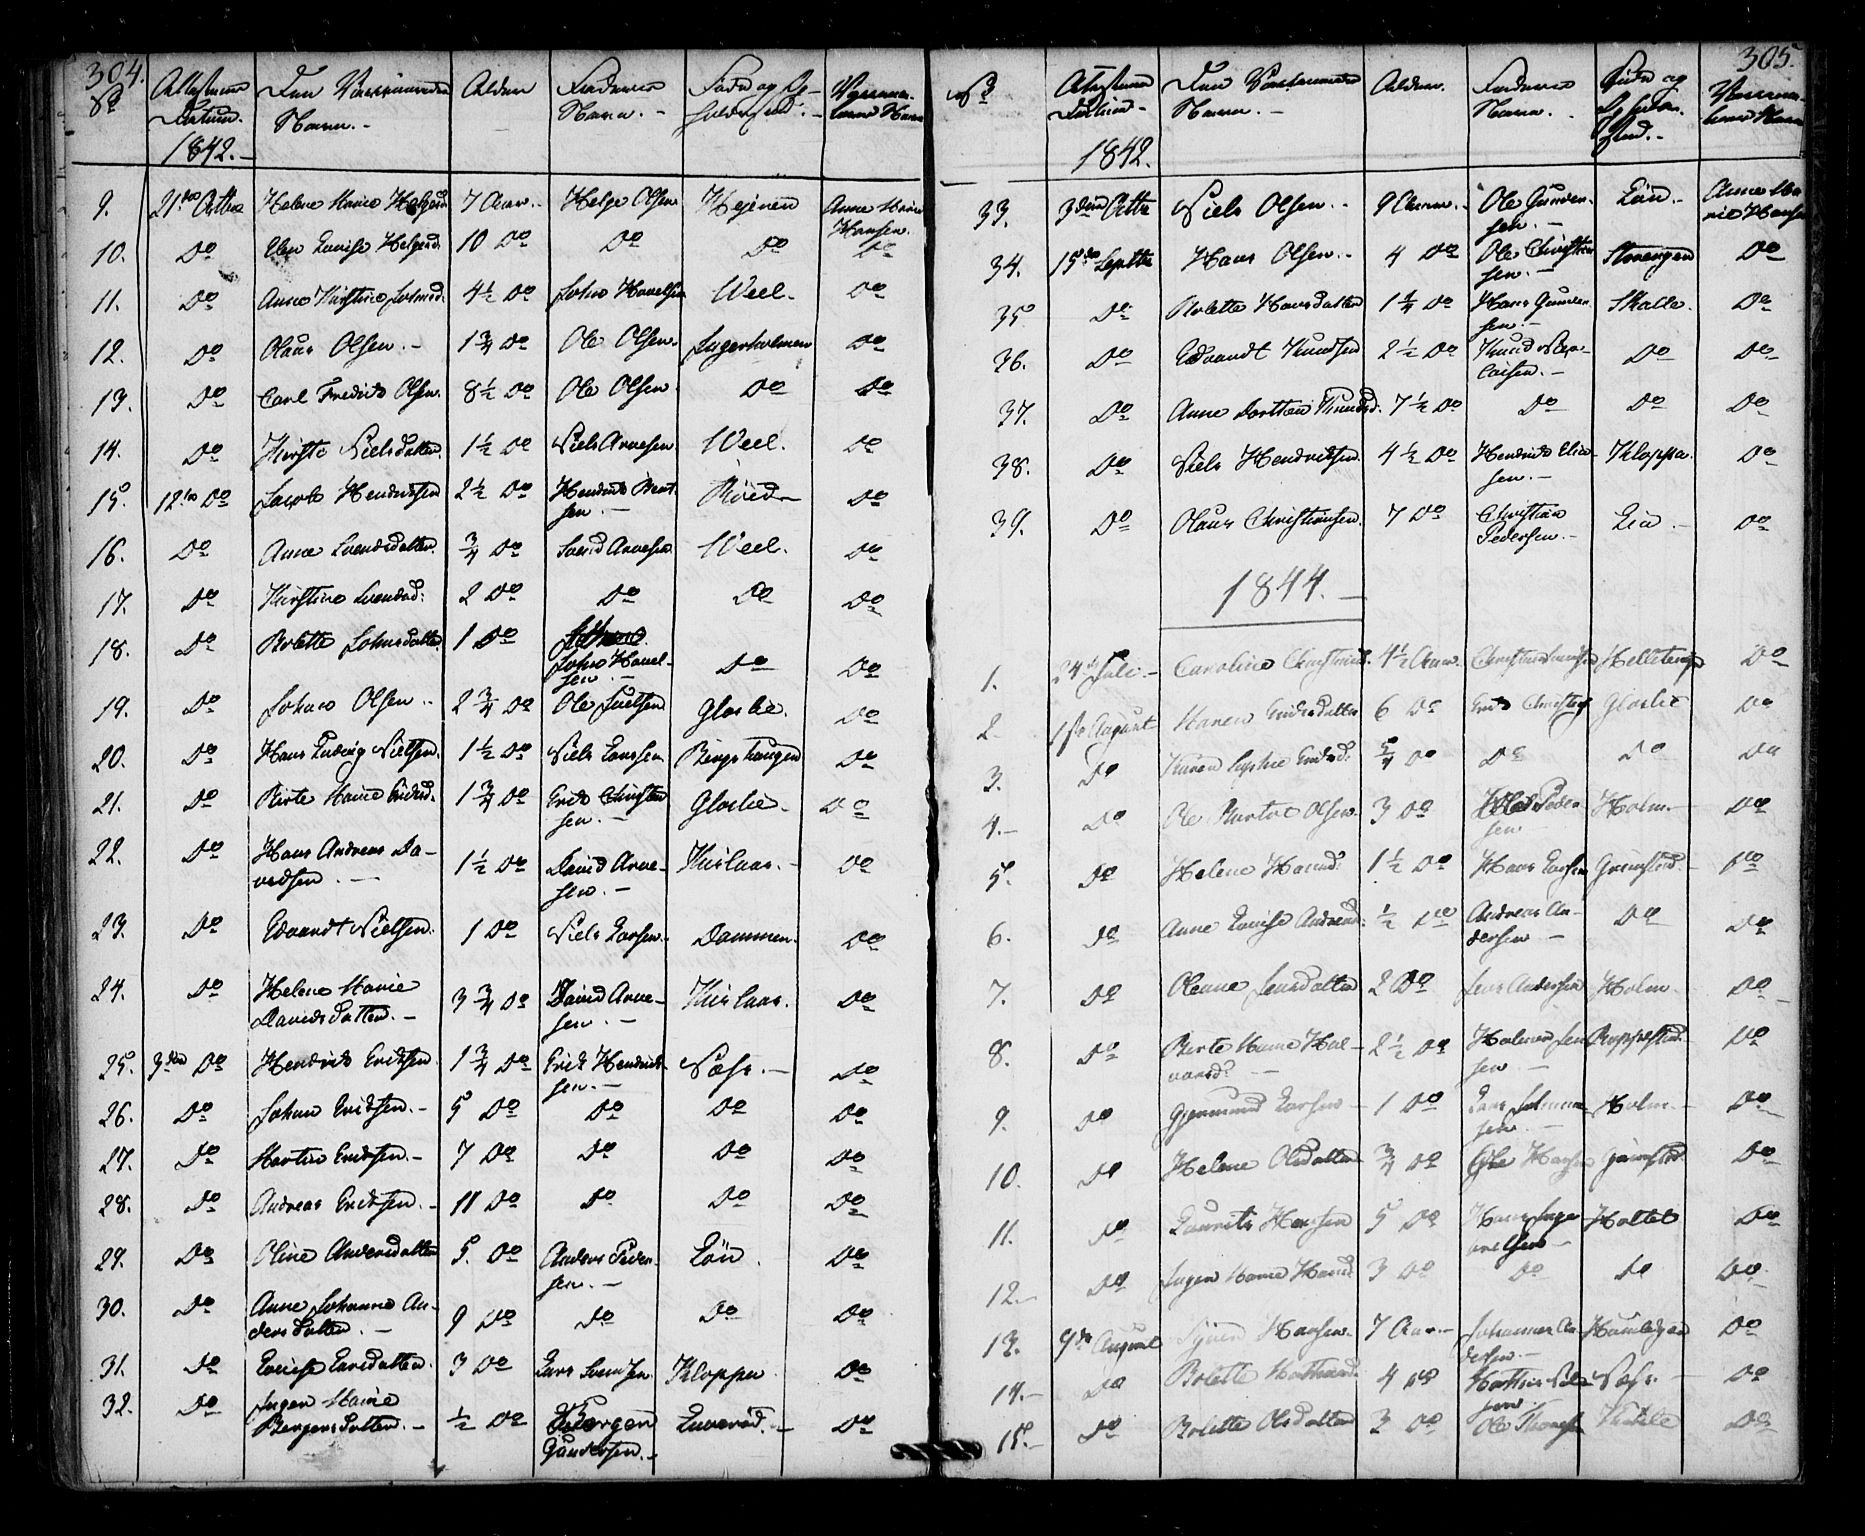 304.
No Attestens Datum. Den Vaccineredes Navn. Alder Faderens Navn. Vaccina-
1842.
9. 21de Octbr Helene Marie 7 Aar. Helge Olsen Anne Marie Hansen.
10. Do Elen Lovise Helgesd. 10 Do Do Do Do
11. Do Anne Kirstine Johnsd. 4½ Do John Havelsen Weel. Do
12. Do Olaus Olsen. 1¾ Do Ole Olsen. Do
13. Do Carl Fredrik Olsen. 8½ Do Ole Olsen. Do Do
14. Do Kirsti Nielsdatter 1½ Do Niels Arvesen Weel. Do
15. 12te Do Jacob Hendriksen 2½ Do Hendrik Bent-
sen. Röed Do
16. Do Anne Svendsdatter ¾ Do Svend Arvesen Weel. Do
17. Do Kirstine Svendsd: 2 Do Do Do Do
18. Do Bolette Johnsdatter 1 Do
John Havel-
sen. Do Do
19. Do Johan Olsen 2¾ Do Ole Gloslie. Do
20. Do Hans Ludvig Nielsen. 1½ Do Niels Larssen Do
21. Do Birte Marie Eriksd. 1¾ Do Erik Christen
sen. Gloslie. Do
22. Do Hans Andreas Da-
vidsen. 1½ Do David Arve-
sen. Kirlaar. Do
23. Do Edvardt Nielsen. 1 Do Niels Larsen. Dammen. Do
24. Do Helene Marie
Davidsdatter. 3¾ Do David Arve-
sen. Kirlaar. Do
25. 3die Do Hendrik Eriksen. 1¾ Do Erik Hendrik-
sen. Næss. Do
26. Do Johan Eriksen. 5 Do Do Do Do
27. Do Martin Eriksen. 7 Do Do Do Do
28. Do Andreas Eriksen. 11 Do Do Do Do
29. Do Oline Andersdatter 5. Do Anders Peder-
sen. Löu. Do
30. Do Anne Johanne An-
dersdatter. 9 Do Do Do Do
31. Do Lovise Larsdatter. 3 Do Lars Svendsen Kloppa Do
32. Do Ingen Marie
Bergersdatter. ½ Do Bergen
Gundersen. Do
305.
No Attestens Datum Den Vaccineredes Navn. Alder. Faderens Navn. Vaccina-
1842.
33. 3die Octbr Niels Olsen. 9 Aar. Ole Gunder-
sen. Löu. Anne Ma-
rie Hansen
34. 15de Septbr Hans Olsen. 4 Do Ole Christen
sen. Storengen Do
35. Do Bolette Hansdatter 1¼ Do Hans Gunder
sen. Skalle. Do
36. Do Edvardt Knudsen 2½ Do Knud Nico-
laisen. Do Do
37. Do Anne Dorthea Knudsd. 7½ Do Do Do Do
38. Do Niels Hendriksen. 4½ Do Hendrik Elia-
sen. Kloppa. Do
39. Do Olaus Christiansen. 7 Do Christian
Pedersen. Lia. Do
1844.
1. 24de Juli. Caroline 4½ Aar. Do
2. 1ste August Maren Eriksdatter 6 Do Erik Gloslie Do
3. Do Karen Sophie Eriksd. 5/4 Do Do Do Do
4. Do Ole Olsen. 3 Do Peder
sen Holm. Do
5. Do Helene Hansd. 1½ Do Hans Larsen Grimstad. Do
6. Do Anne Lovise Andreasd. ½ Do Andreas An-
dersen Do Do
7. Do Olenne Jensdatter 2 Do Jens Andersen Holm. Do
8. Do Berte Marie Hal-
vorsd. 2½ Do Halvor Jen
sen Do
9. Do Gjermund Larsen 1 Do Lars
sen. Holm. Do
10. Do Helene Olsdatter ¾ Do Ole Hansen Grimstad. Do
11. Do Laurits Hansen 5 Do Hans Inge-
Holtet Do
12. Do Ingen Marie Hansd. 3 Do Do Do Do
13. 9de August Hansen. 7 Aar. Johannes An
dersen. Do
14. Do Bolette 4 Do
Næss. Do
15. Do Bolette Olsdatter 3 Do Ole Do